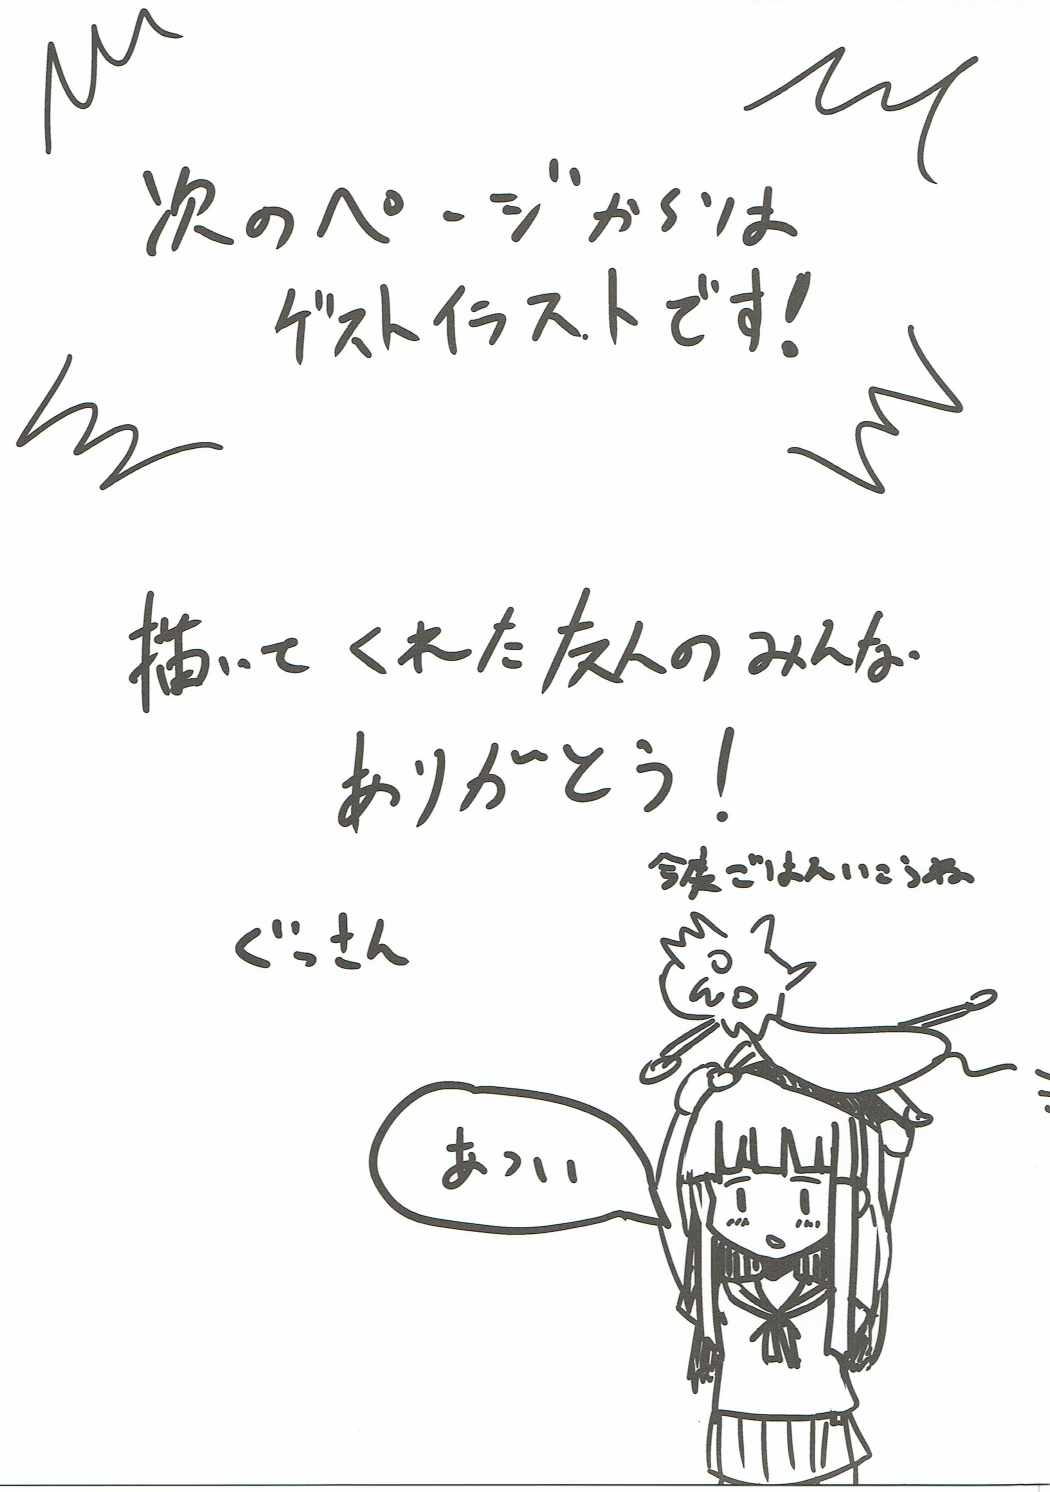 次のページからは
ゲストイラストです!
描いてくれた友人のみんな
ありがとう!
今度ごはんいこうね
ぐっさん
あつい